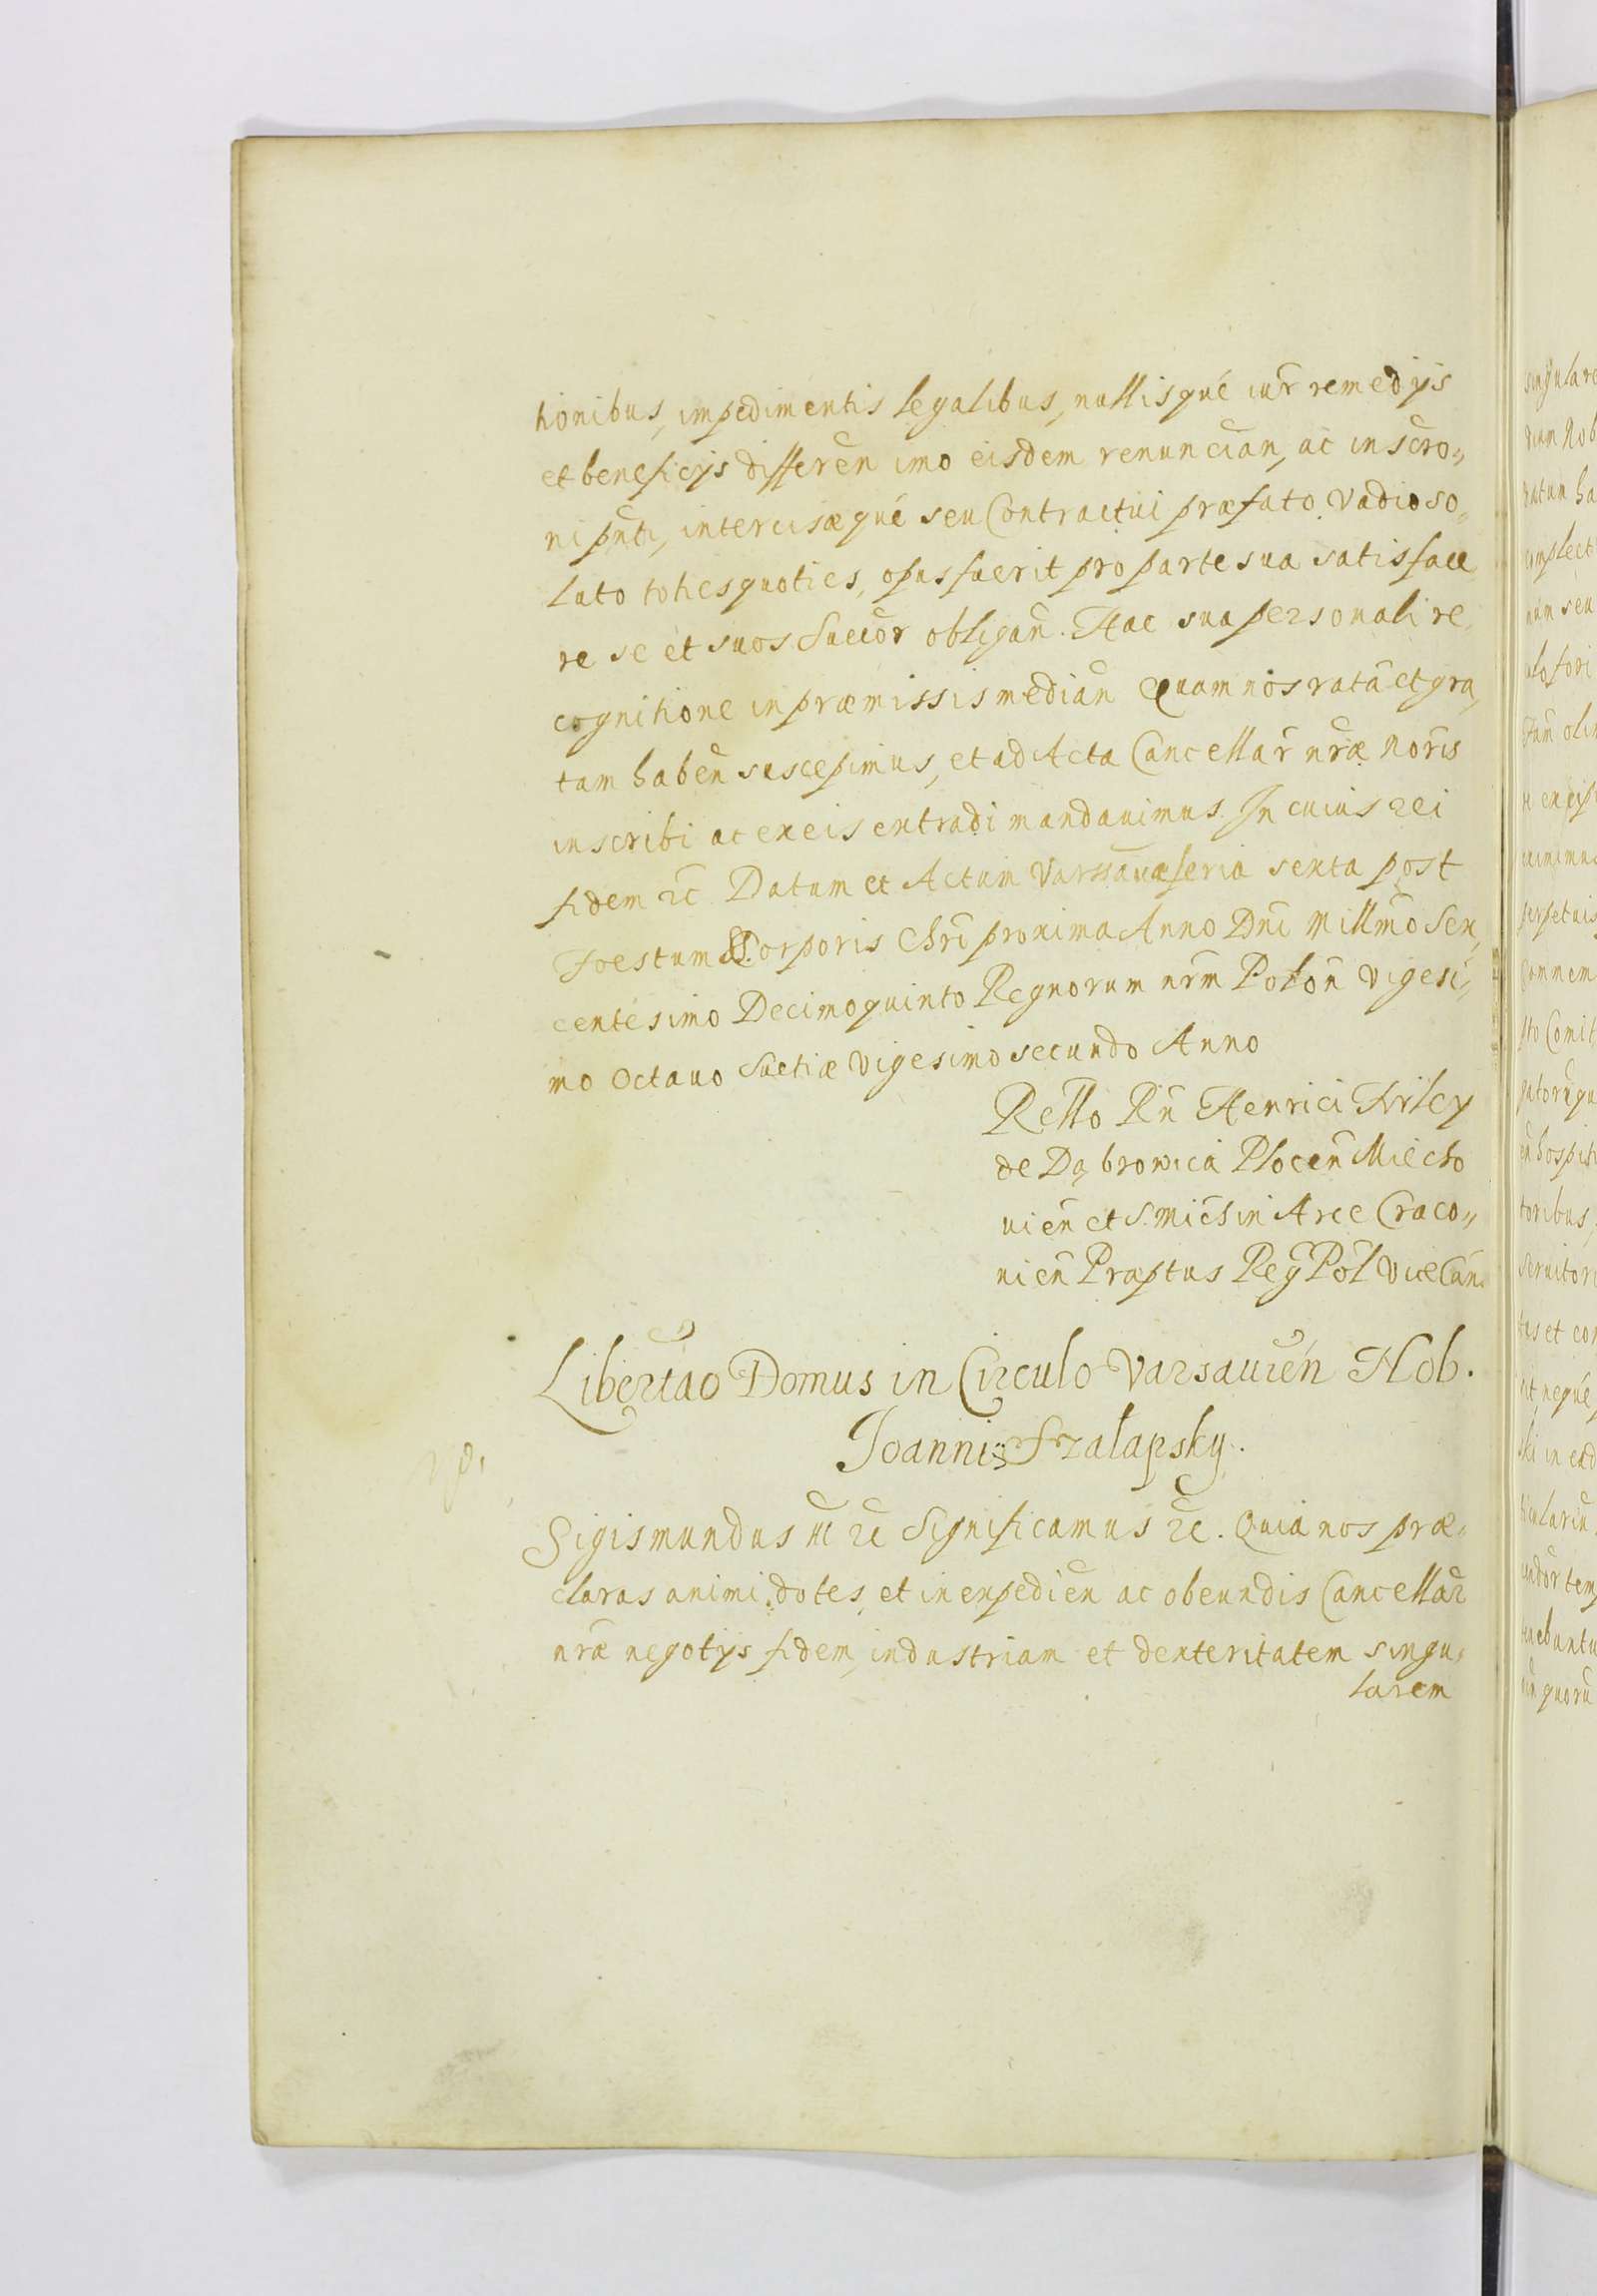 tionibus, impedimentis legalibus, nullisqué iur̃ remedijs
et beneficijs differen̄ imo eisdem renuncian̄, ac inscro„
ni pn̄ti, intercisæqué seu Contractui præfato. Vadio so„
luto toties quoties, opus fuerit pro parte sua satisface
re se et suos Succor̄ obligan̄. Hac sua personali re„
cognitione in præmissis median̄ Quam nos ratā et gra„
tam haben̄ suscepimus, et ad Acta Cancellar̄ nr̄æ Nor̄is
inscribi ac ex eis extradi mandauimus. In cuius rei
fidem etc̄ Datum et Actum Varssauiæ feria sexta post
Foestum SS. Corporis Chrī proxima Anno Dnī Millm̄o Sex„
centesimo Decimoquinto Regnorum nrm̄ Polon̄ Vigesi„
mo Octauo Suetiæ Vigesimo secundo Anno
Rello Rn̄ Henrici Firley
de Dąbrowica Plocen̄ Miecho
uien̄ et S. Micħ in Arce Craco„
nien̄ Præptus Reg̃ Pol̄ ViceCan̄.
Libertao Domus in Circulo Varsauien̄ Nob.
Joannis Szalapsky.
Sigismundus III etc̄ Significamus etc̄. Quia nos præ„
claras animi dotes, et in expedien̄ ac obeundis Cancellar̄
nr̄æ negotijs fidem, industriam et dexteritatem singu„
larem